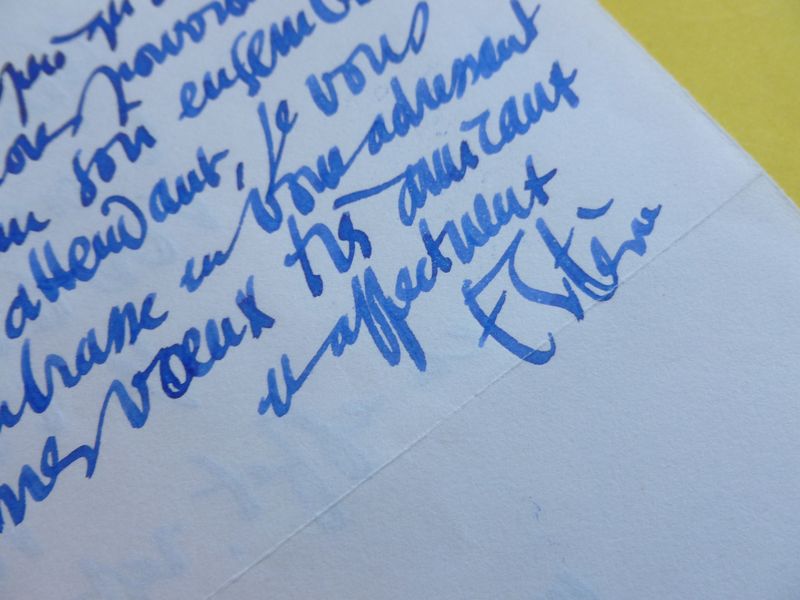 pouvoir
son ensemble
attendant, je vous
embrasse en vous adressant
mes voeux très amicaux
et affectueux
Estève